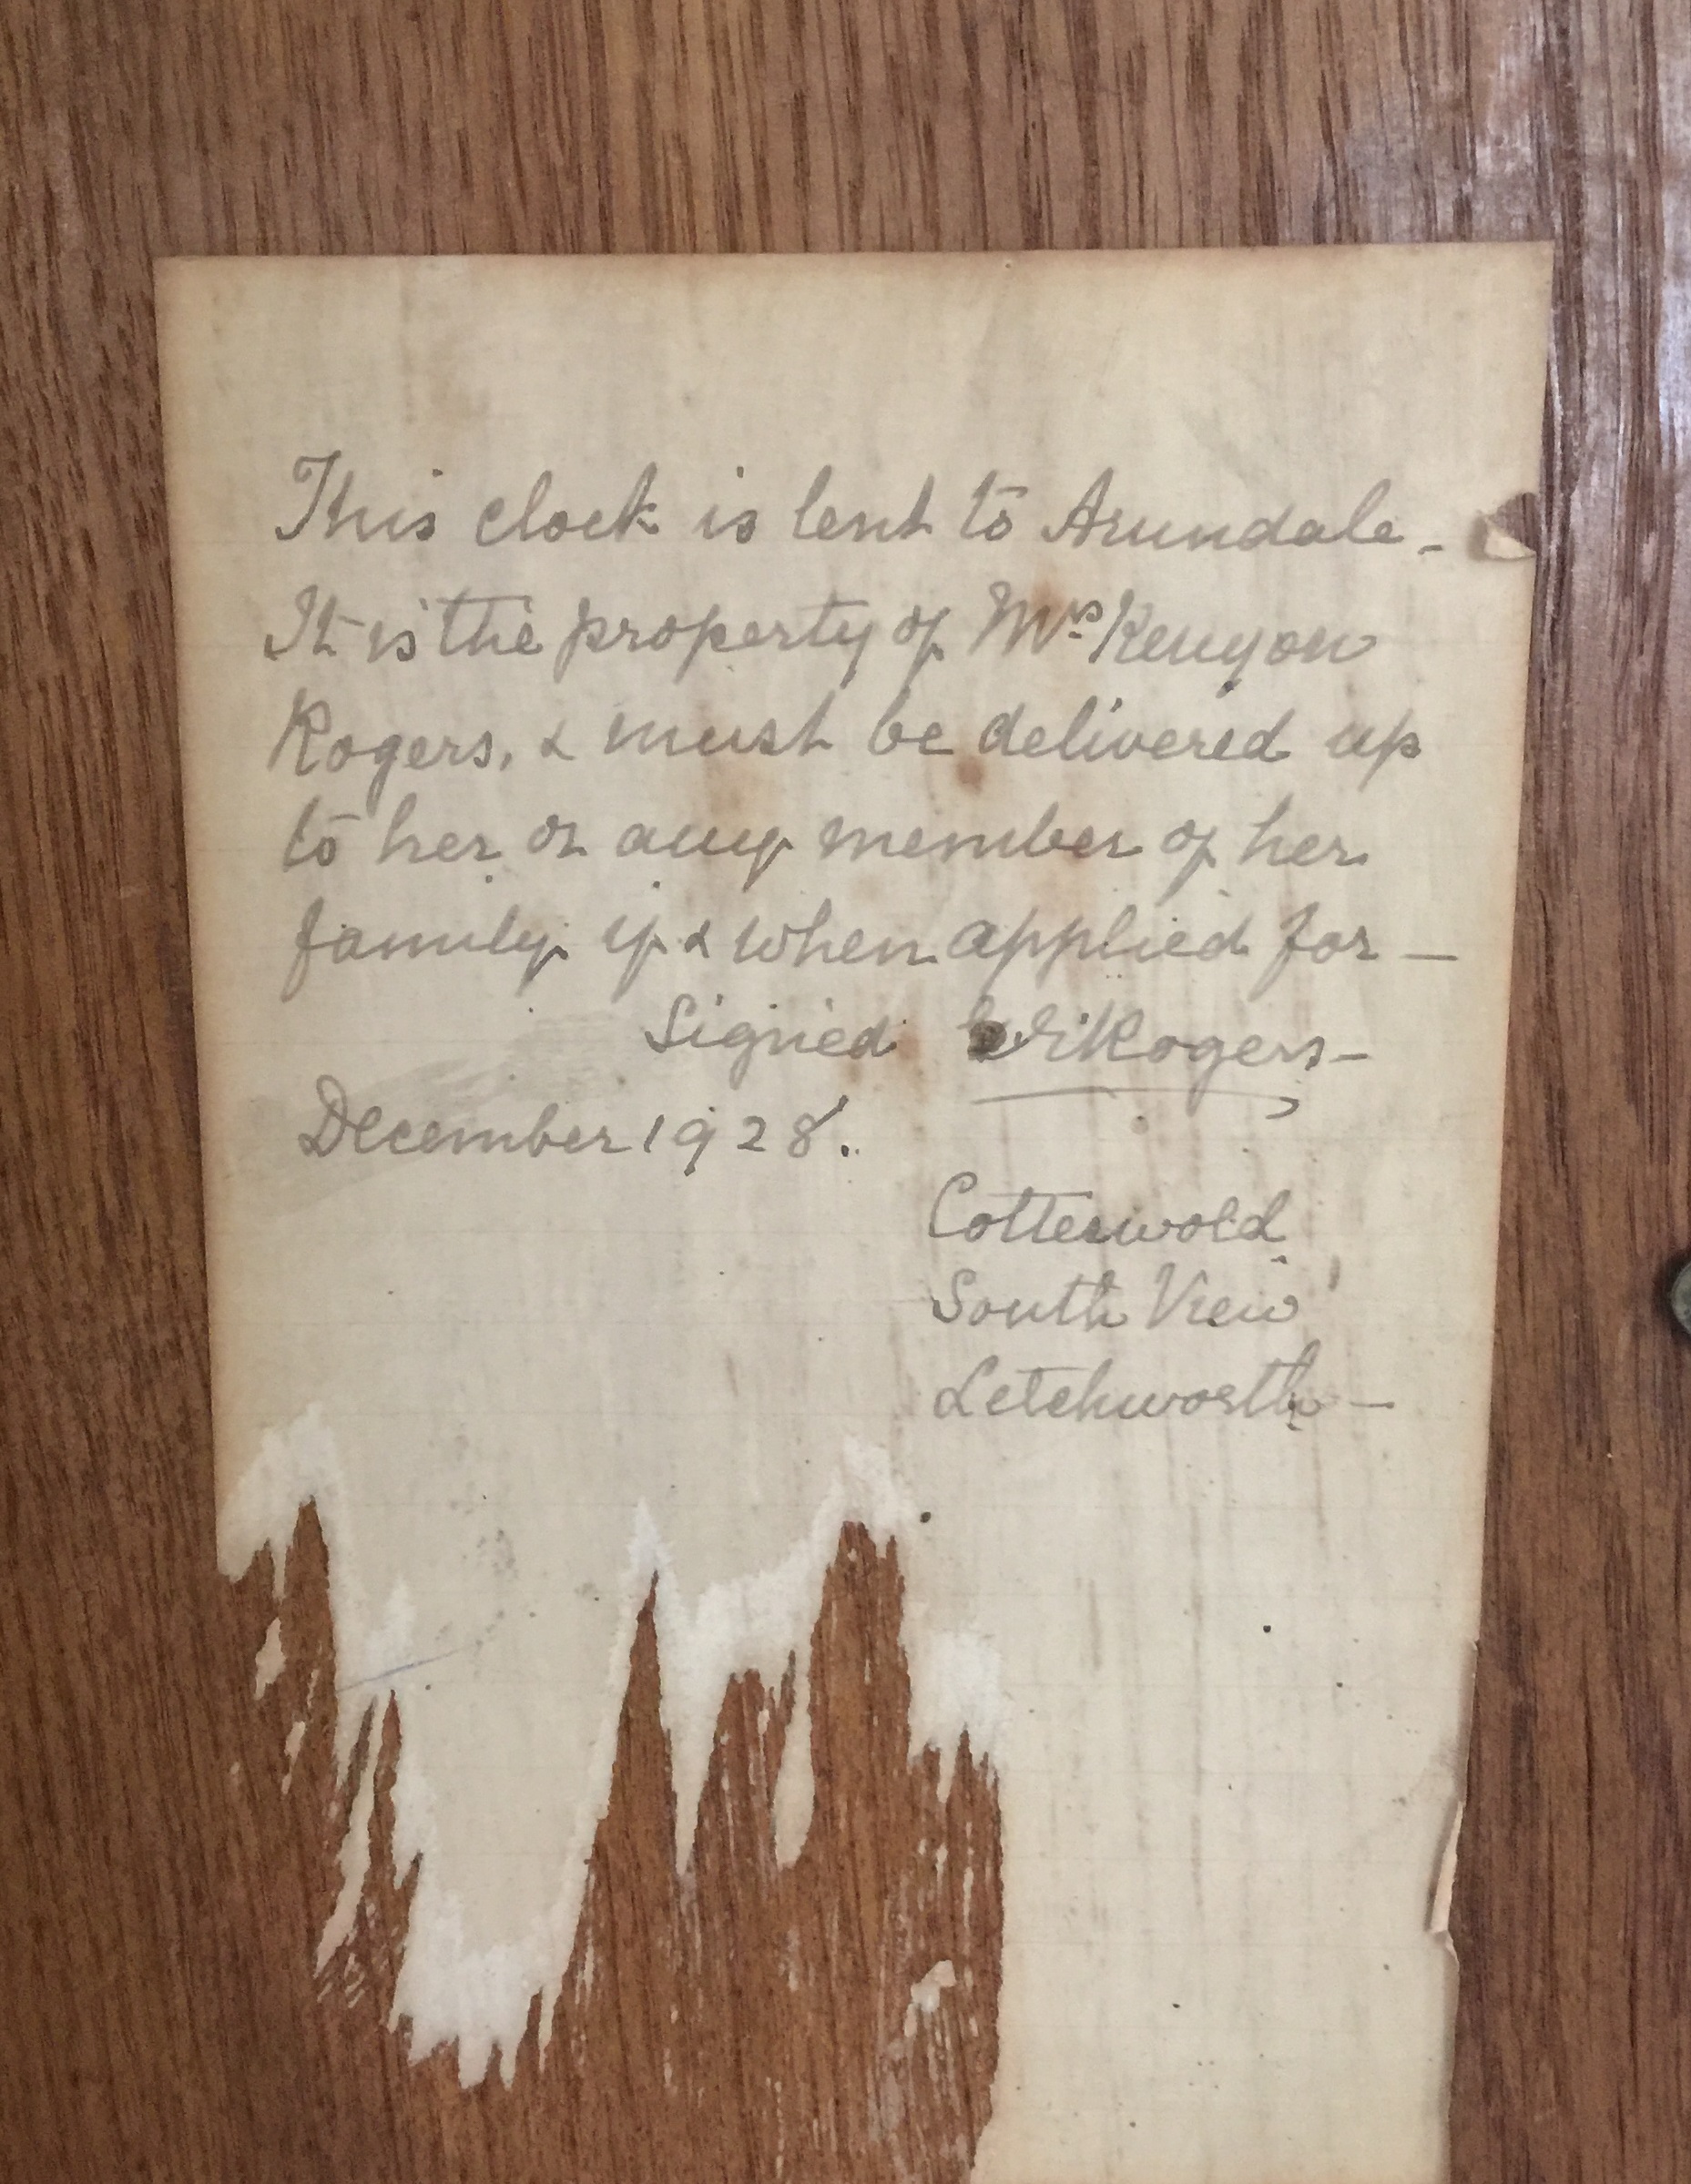 This clock is lent to Arundale -
It is the property of Mrs Kenyon
Rogers, & must be delivered up
to her or any member of her
family if & when applied for —
Signed Rogers -
December 1928.
Cotterwold
South View
Letchworth —